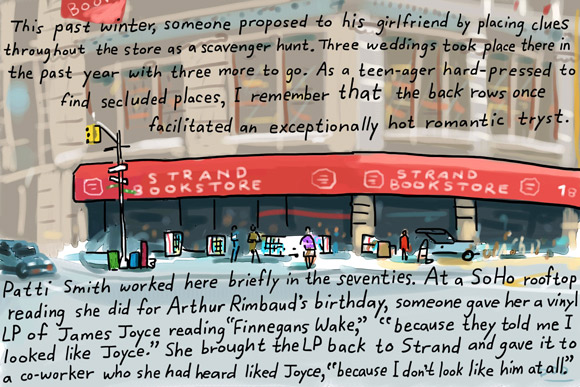 BOOKS
This past winter, someone proposed to his girlfriend by placing clues
throughout the store as a scavenger hunt. Three weddings took place there in
the past year with three more to go. As a teen-ager hard-pressed to
find secluded places, I remember that the back rows once
facilitated an exceptionally hot romantic tryst.
STRAND
BOOKSTORE
STRAND
BOOKSTORE
18
Patti Smith worked here briefly in the seventies. At a SoHo rooftop
reading she did for Arthur Rimbaud's birthday, someone gave her a vinyl
LP of James Joyce reading "Finnegans Wake," "because they told me I
looked like Joyce." She brought the LP back to Strand and gave it to
a co-worker who she had heard liked Joyce, "because I don't look like him at all."